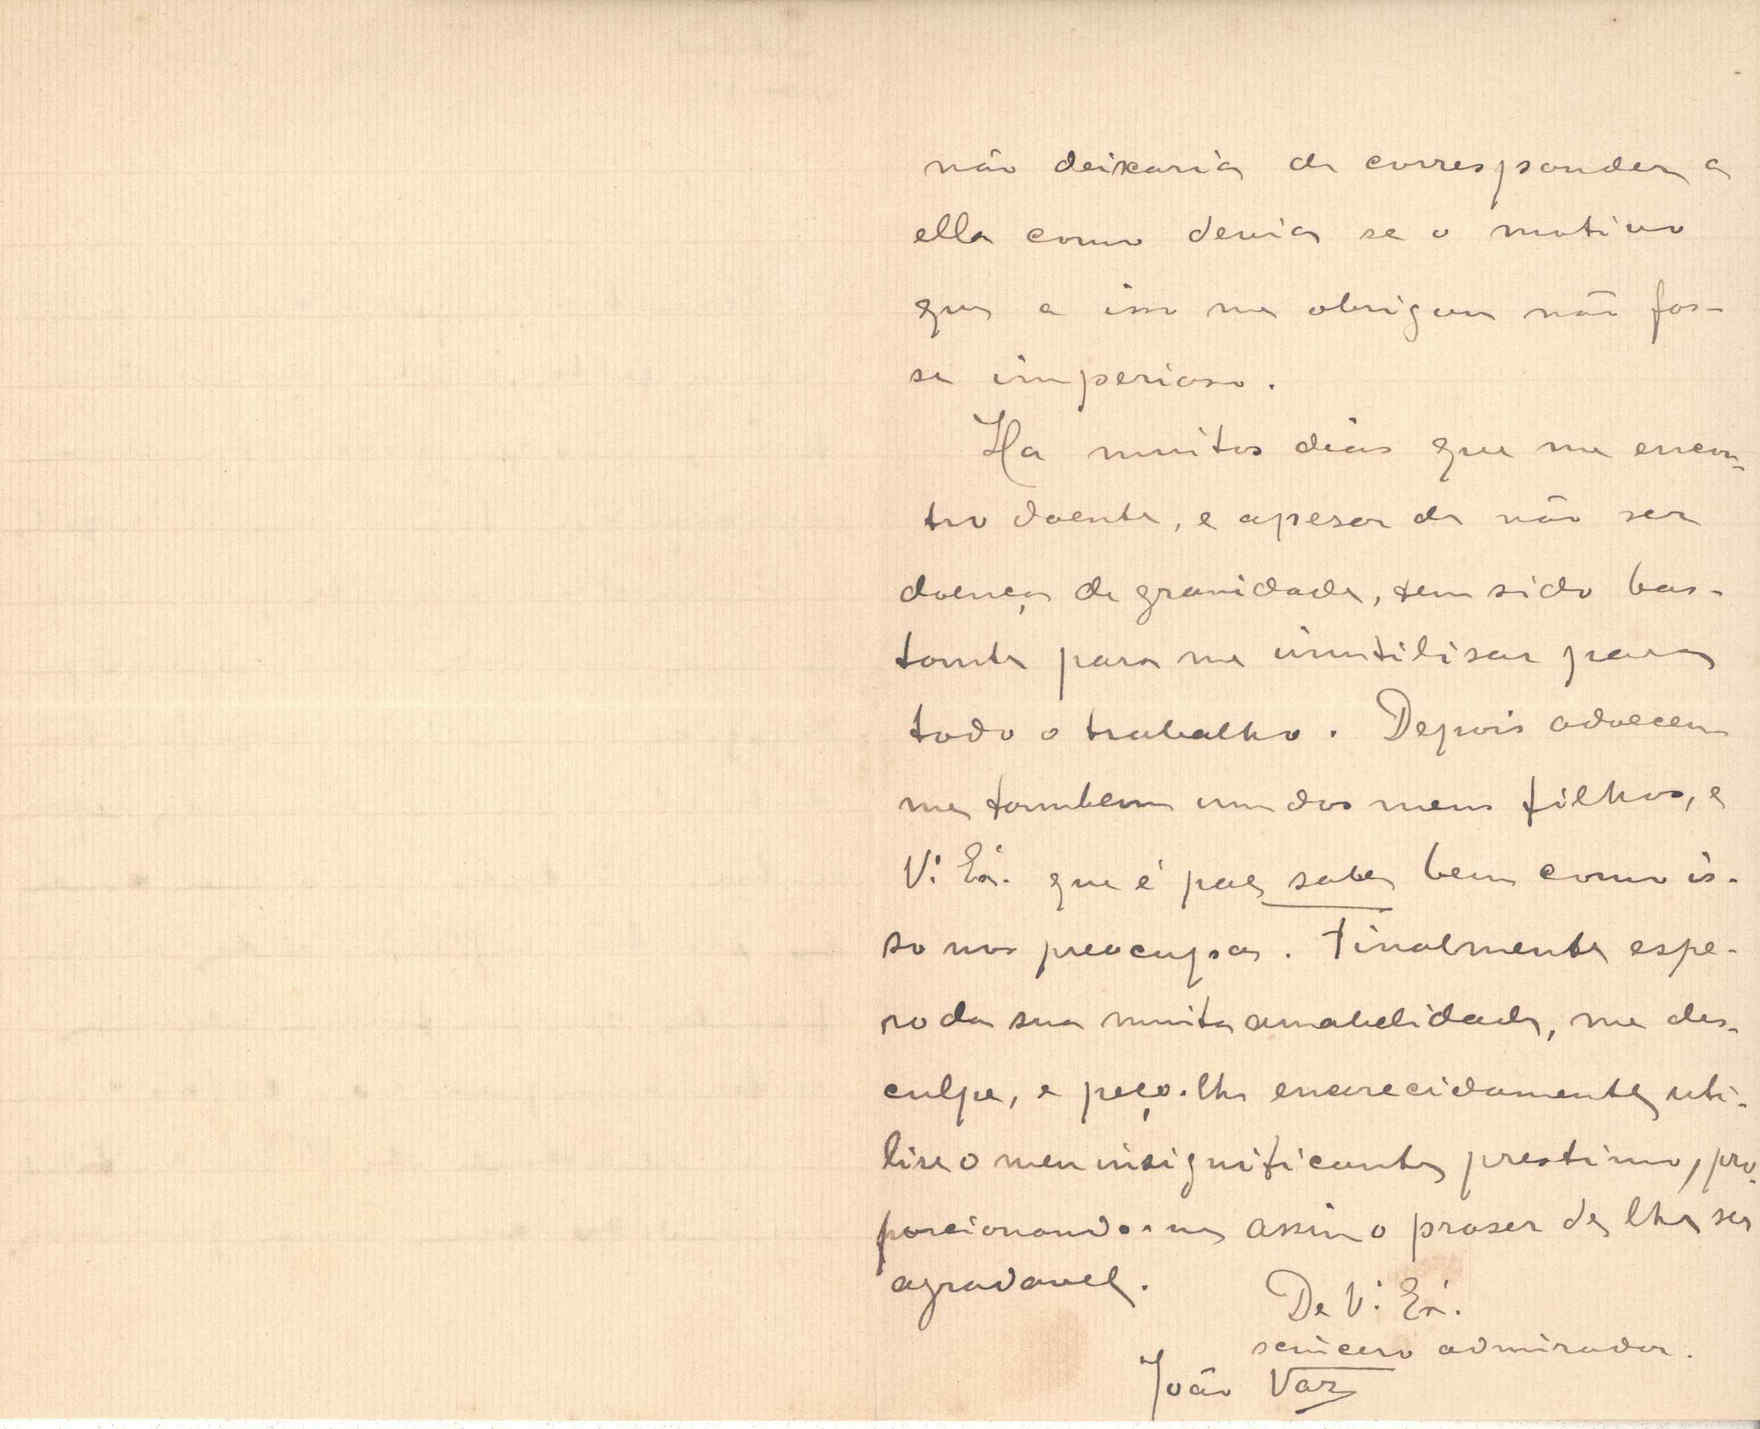 não deixaria de corresponder a
ella como devia se o motivo
que a isso me obrigou não fos-
se imperioso.
Ha muitos dias que me encon-
tro doente, e apesar de não ser
doença de gravidade, tem sido bas-
tante para me inutilisar para
todo o trabalho. Depois adoeceu
me tambem um dos meus filhos, e
V. Ex.ª que é pae, sabe bem como is-
so nos preocupa. Finalmente espe-
ro da sua muita amabelidade, me des-
culpe, e peço-lhe encarecidamente uti-
lise o meu insignificante prestimo, pro-
porcionando-me assim o praser de lhe ser
agradavel.
De V. Ex.ª
sincero admirador.
João Vaz